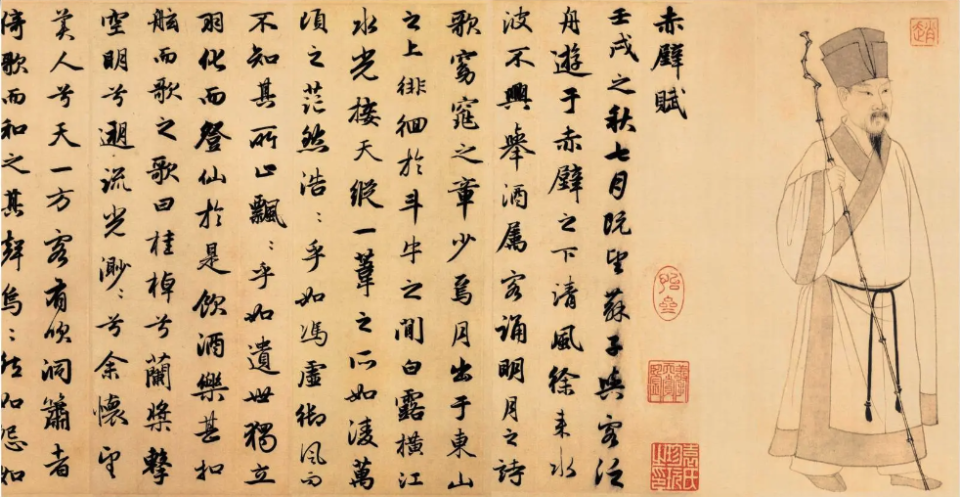 赤壁賦
壬戌之秋七月既望蘇子與客泛
舟遊于赤壁之下清風徐来水
波不興舉酒属客誦明月之詩
歌窈窕之章少焉月出于東山
之上徘徊於斗牛之間白露橫江
水光接天縱一葦之所如凌萬
頃之茫然浩〻乎如馮虛御風而
不知其所止飄〻乎如遺世獨立
羽化而登仙於是飲酒樂甚扣
舷而歌之歌曰桂棹兮蘭槳擊
空明兮遡流光渺〻兮余懷望
美人兮天一方客有吹洞簫者
倚歌而和之其聲嗚〻然如怨如
趙